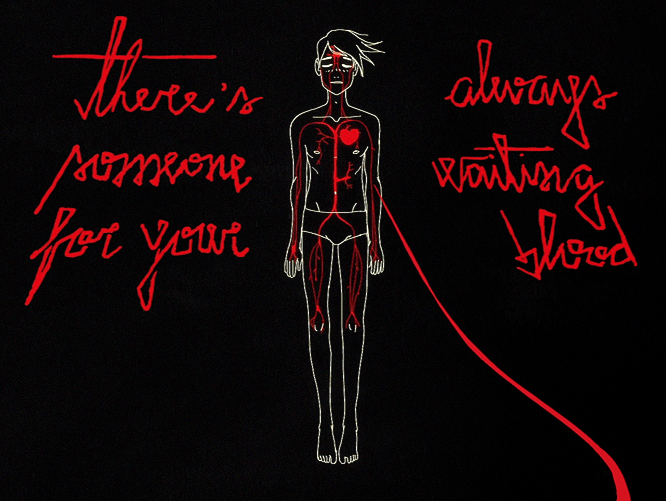 there's always
someone waiting
for your blood